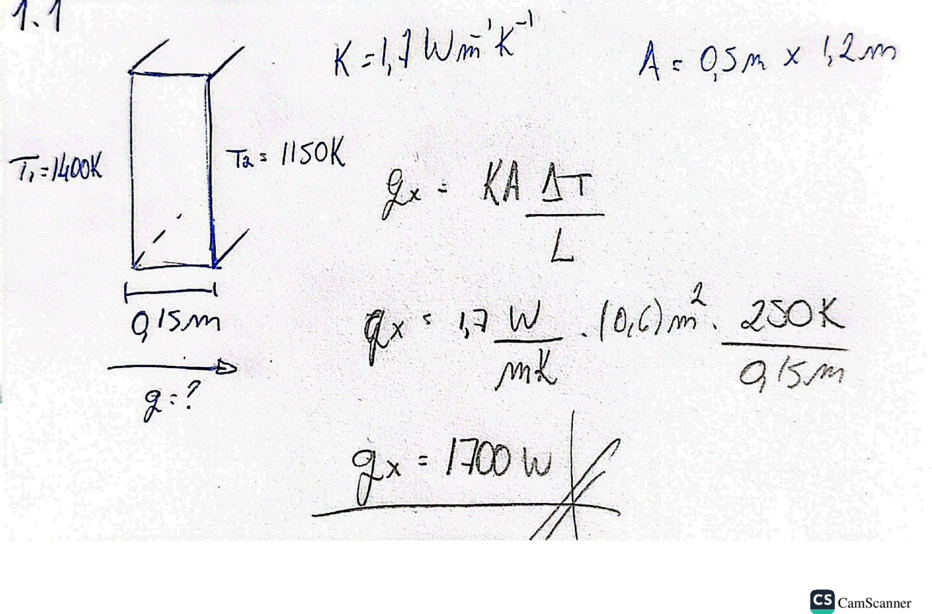 1.1
K = 1,7 W m⁻¹ K⁻¹
A = 0,5m x 1,2m
T₁ = 1400K
T₂ = 1150K
qx = KA ΔT / L
0,15m
qx = 1,7 W / mK . (0,6) m² . 250K / 0,15m
q = ?
qx = 1700 W
CS CamScanner